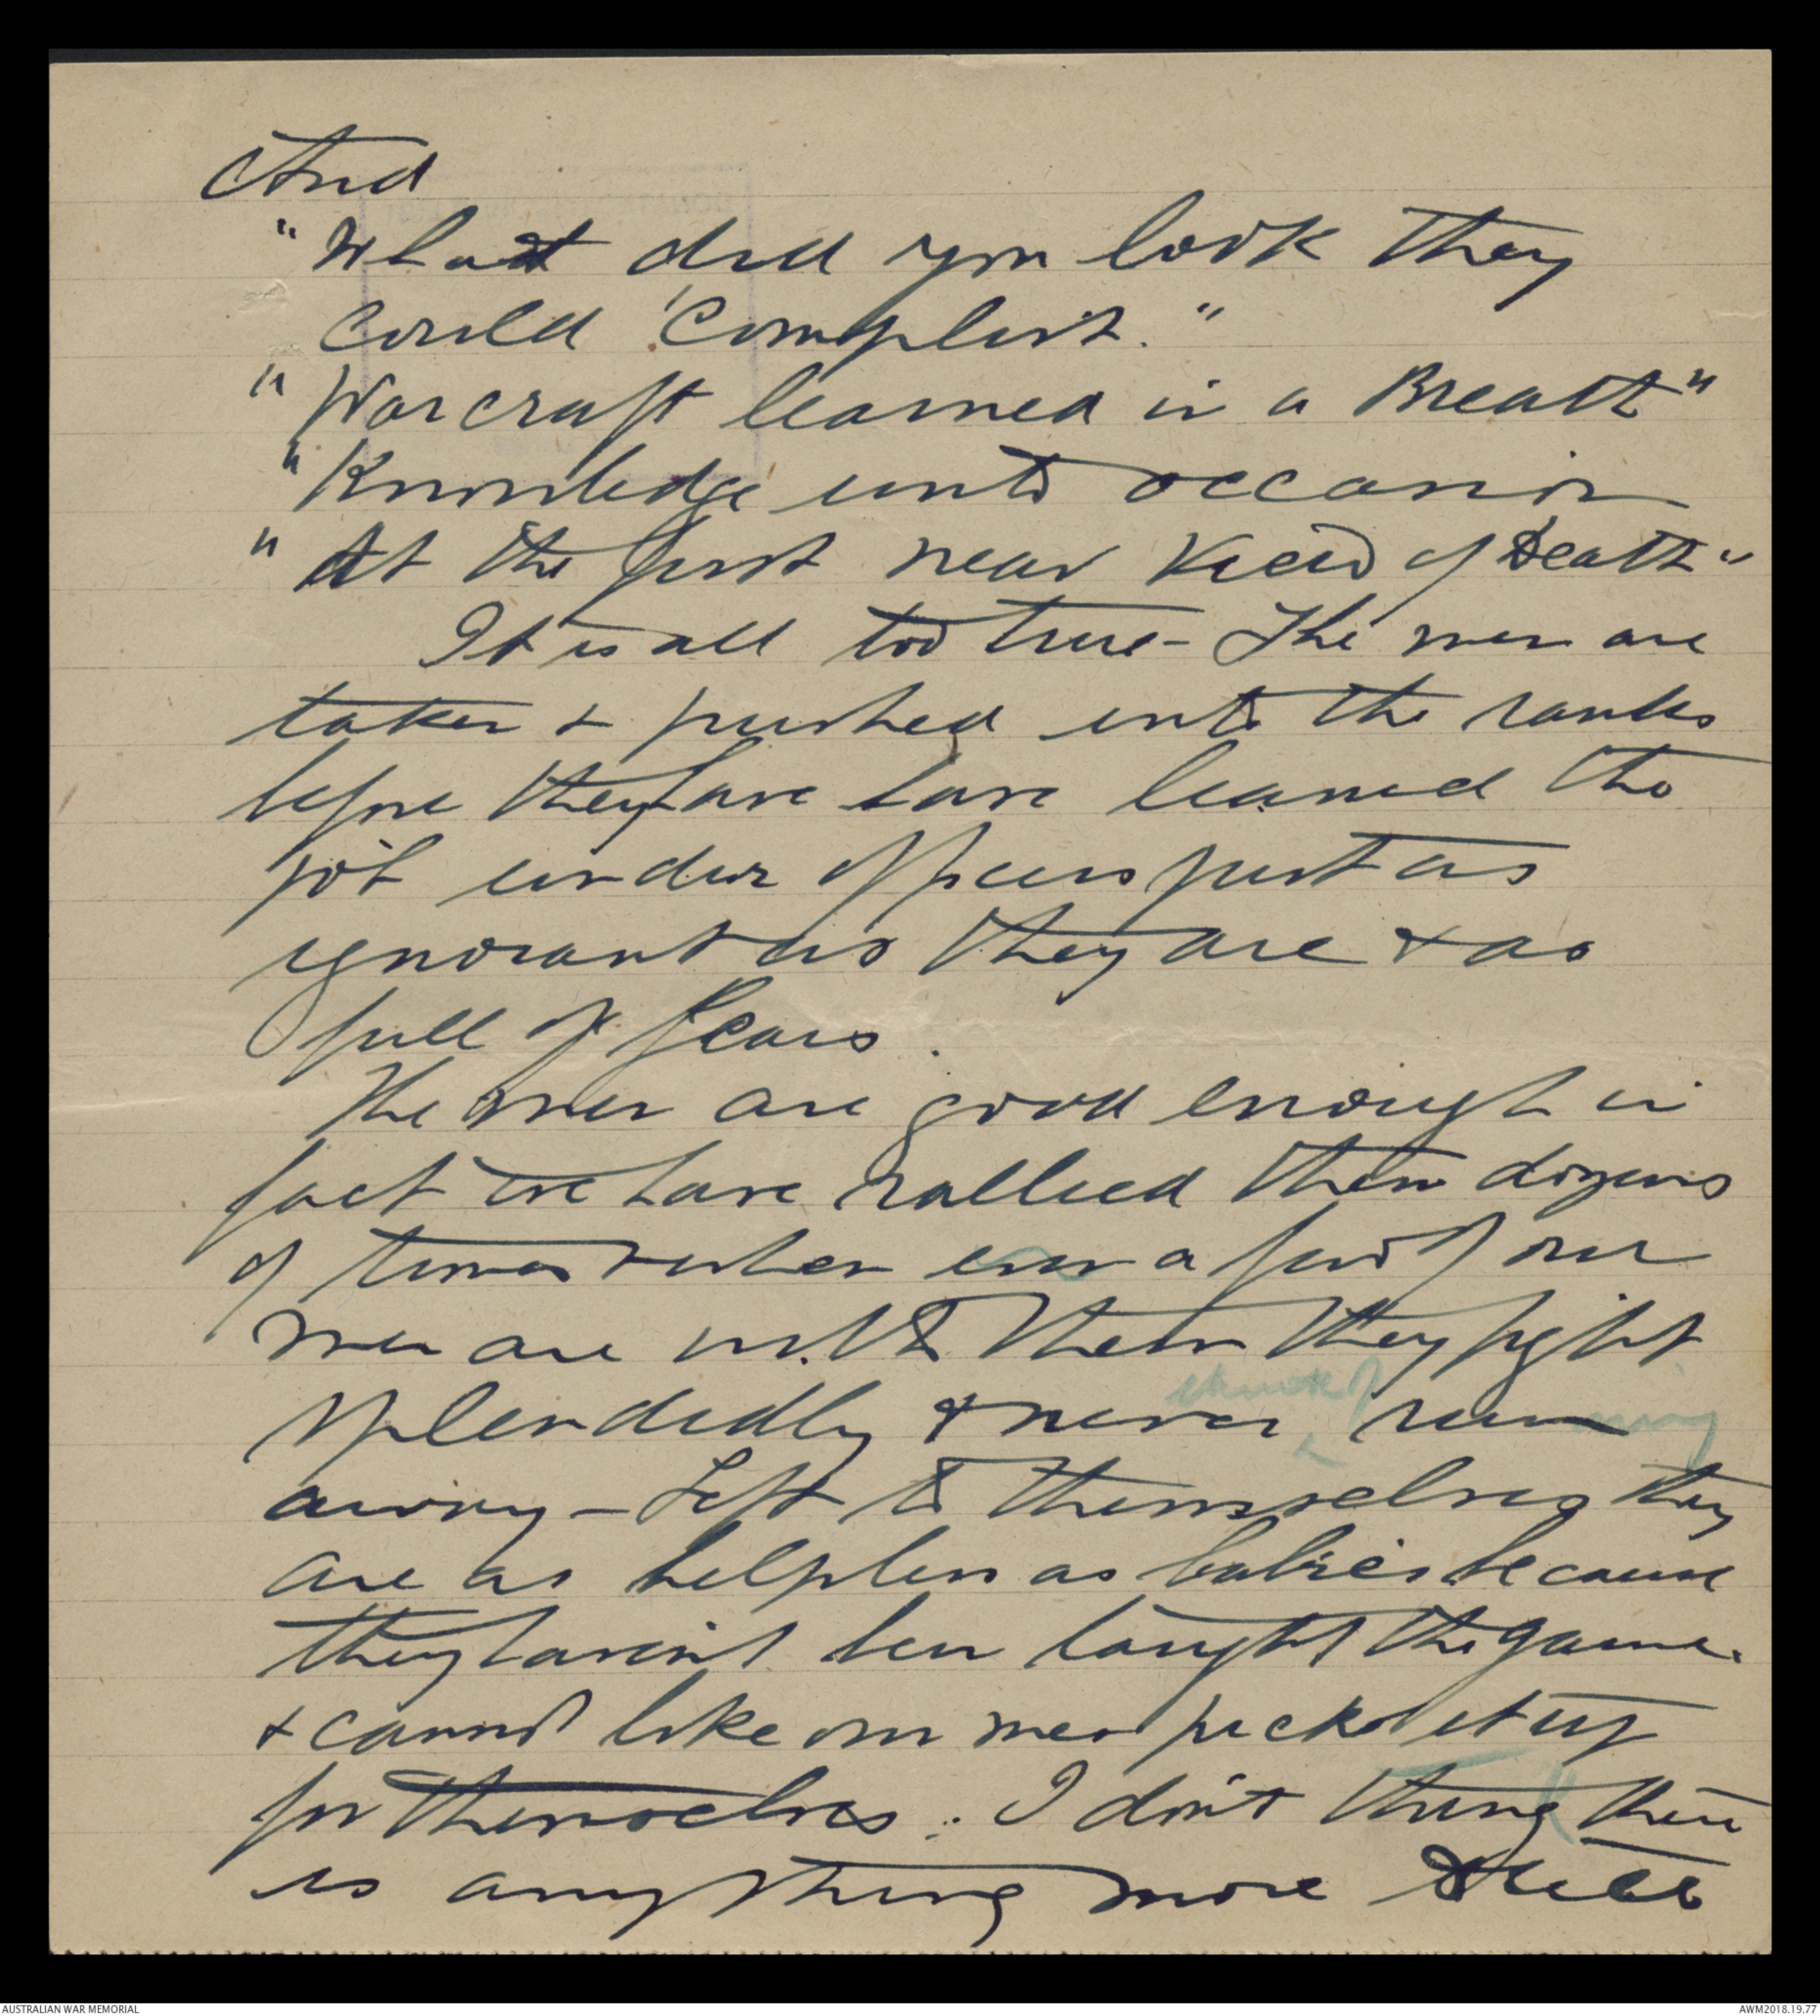 And
"What did you look they
could 'Complish."
"Warcraft learned in a Breath"
"Knowledge unto occasion
"At the first near View of Death"
It is all too true - The men are
taken & pushed into the ranks
before they have have learned the
job under officers just as
ignorant as they are & as
full of fears.
The men are good enough in
fact we have rallied them dozens
of times & when even a few of our
men are with them they fight
splendidly & never think of running
away - Left to themselves they
are as helpless as babies because
they haven't been taught the game.
& cannot like our men pick it up
for themselves. I don't think there
is anything more
AUSTRALIAN WAR MEMORIAL
AWM2018.19.77